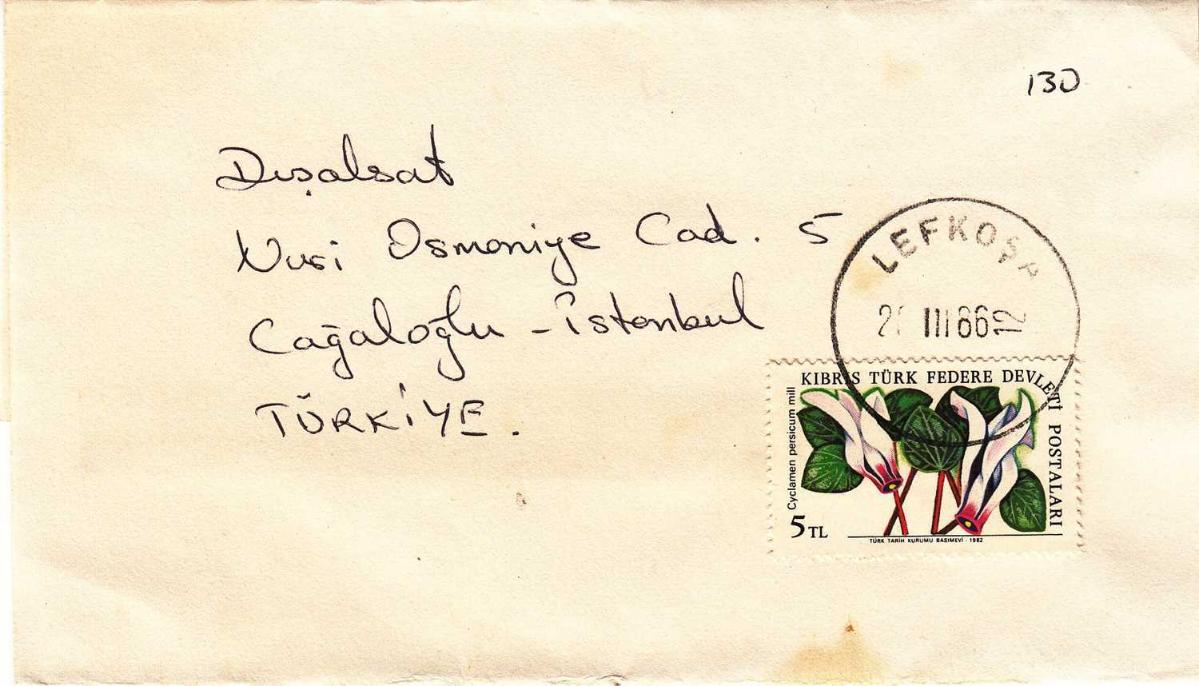 130
Dışalsat
Nusi Osmaniye Cad. 5
Cağaloğlu - İstanbul
TÜRKİYE.
LEFKOŞA
III 86 12
KIBRIS TÜRK FEDERE DEVLETİ POSTALARI
Cyclamen persicum mill
5 TL
TÜRK TARİH KURUMU BASIMEVİ · 1982